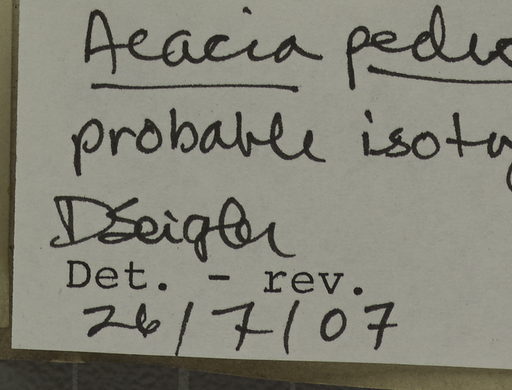 Acacia pedu
probable isoty
DSeigler
Det. - rev.
26/7/07